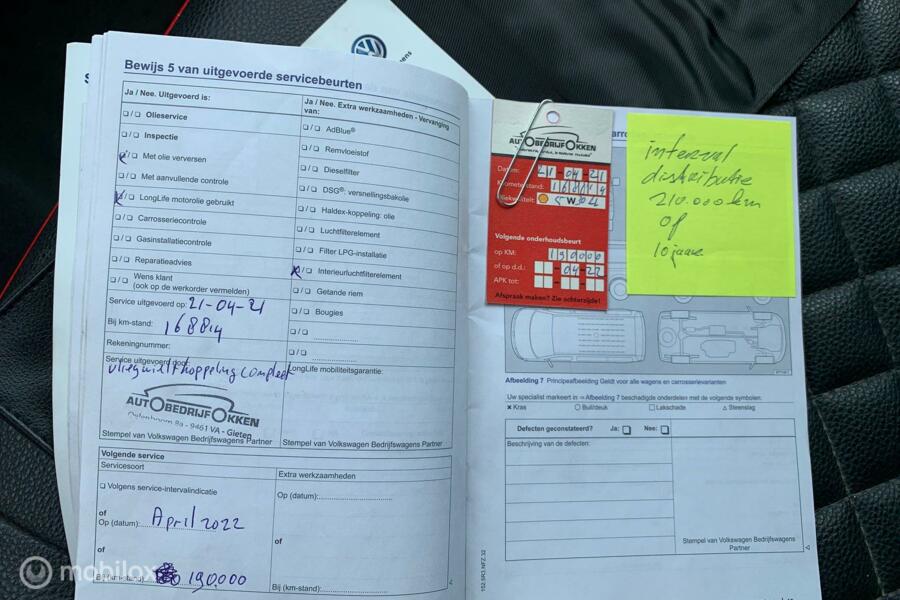 Bewijs 5 van uitgevoerde servicebeurten
Ja / Nee. Uitgevoerd is:
Olieservice
Inspectie
Met olie verversen
Met aanvullende controle
LongLife motorolie gebruikt
Carrosseriecontrole
Gasinstallatiecontrole
Reparatieadvies
Wens klant
(ook op de werkorder vermelden)
Service uitgevoerd op: 21-04-21
Bij km-stand: 168814
Rekeningnummer:
Service uitgevoerd door:
vliegwiel + koppeling compleet
AUTOBEDRIJF OKKEN
8a - 9461 VA - Gieten
Stempel van Volkswagen Bedrijfswagens Partner
Ja / Nee. Extra werkzaamheden - Vervanging
van:
AdBlue®
Remvloeistof
Dieselfilter
DSG®: versnellingsbakolie
Haldex-koppeling: olie
Luchtfilterelement
Filter LPG-installatie
Interieurluchtfilterelement
Getande riem
Bougies
LongLife mobiliteitsgarantie:
Stempel van Volkswagen Bedrijfswagens Partner
Volgende service
Servicesoort
Volgens service-intervalindicatie
of
Op (datum): April 2022
of
Bij (km-stand): 190.000
Extra werkzaamheden
Op (datum):
of
Bij (km-stand):
AUTOBEDRIJF OKKEN
Datum: 21-04-21
Kilometerstand: 168814
Oliekwaliteit: 5 W 30 LL
Volgende onderhoudsbeurt
op KM: 190000
of op d.d.: -04-22
APK tot:
Afspraak maken? Zie achterzijde!
interval
distributie
210.000 km
of
10 jaar
Afbeelding 7 Principeafbeelding Geldt voor alle wagens en carrosserievarianten
Uw specialist markeert in ⇒ Afbeelding 7 beschadigde onderdelen met de volgende symbolen:
Kras Buil/deuk Lakschade Steenslag
Defecten geconstateerd? Ja: Nee:
Beschrijving van de defecten:
Stempel van Volkswagen Bedrijfswagens
Partner
152.5R3.NFZ.32
mobilox